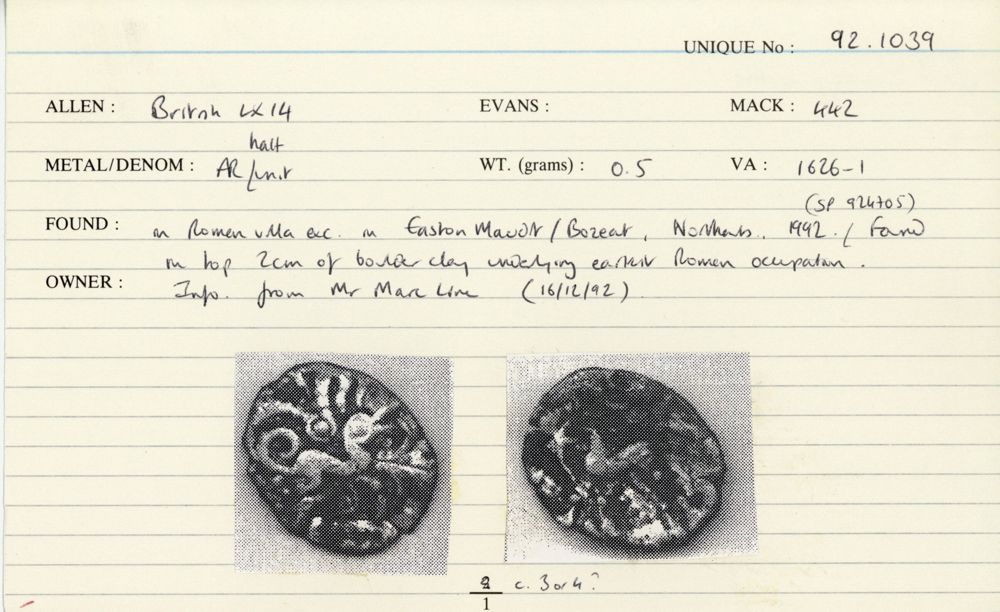 UNIQUE No : 92.1039
ALLEN : British LX 14 EVANS : MACK : 442
half
METAL/DENOM : AR/unit WT. (grams) : 0.5 VA : 1626-1
(SP 924705)
FOUND : in Roman villa exc. in Easton Maudit / Bozeat, Northants, 1992. / Found
in top 2cm of boulder clay underlying earliest Roman occupation.
OWNER : Info. from Mr Marc Line (16/12/92)
c. 3 or 4?
1